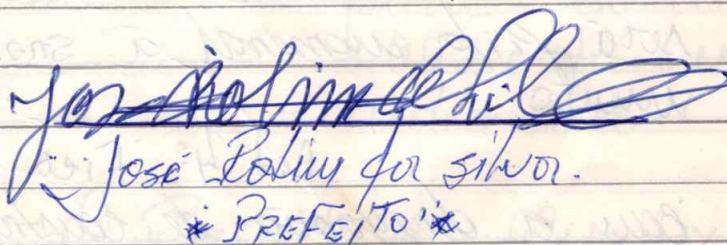 José Rolim da Silva
José Rolim da Silva.
* PREFEITO *